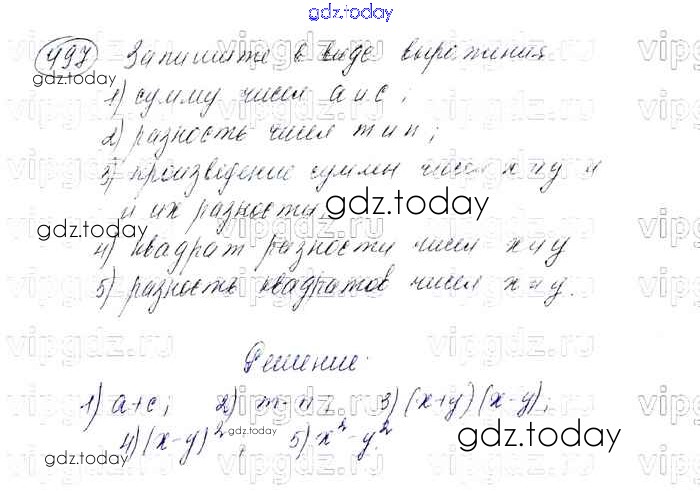 gdz.today
497 Запишите в виде выражения
gdz.today
1) сумму чисел a и c;
2) разность чисел m и n;
3) произведение суммы чисел x и y и
и их разности;
gdz.today
gdz.today
4) квадрат разности чисел x и y
5) разность квадратов чисел x и y.
Решение:
1) a+c; 2) m-n; 3) (x+y)(x-y);
4) (x-y)²; 5) x²-y².
gdz.today
gdz.today
gdz.today
vipgdz.ru